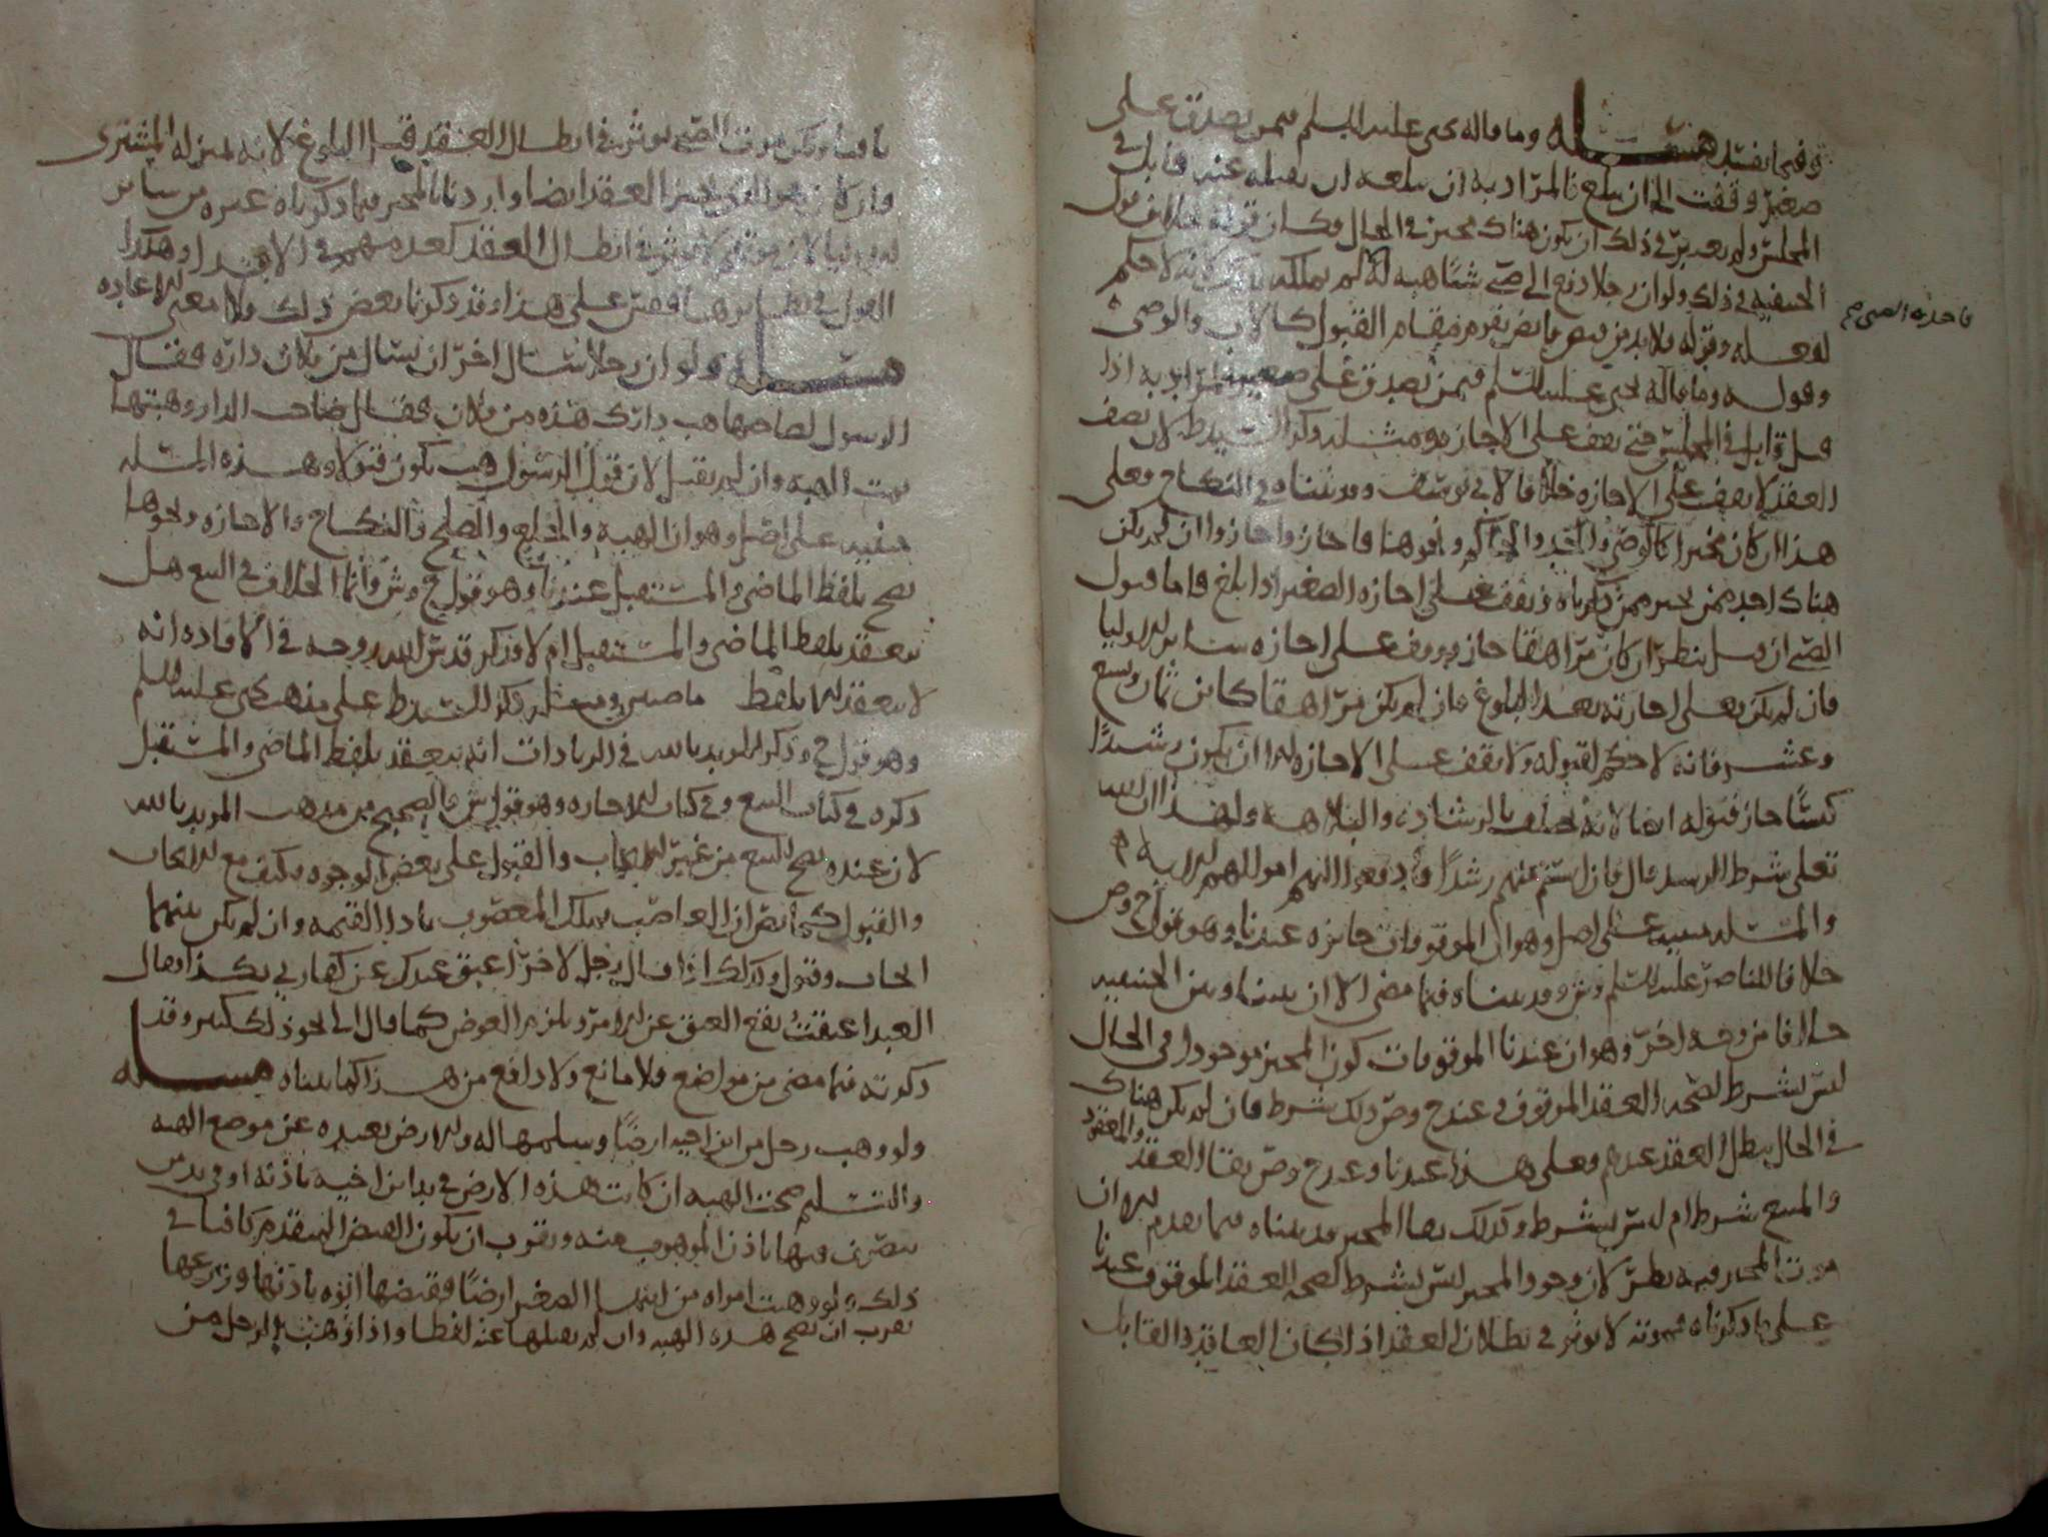 وفيما يفسد مسئلة وما قاله يحيى عليه السلم فيمن تصدق على
صغير وقفت الى ان يبلغ فالمراد به ان بلغه ان يقبله عنه قابل في
المجلس ولم يعتبر في ذلك ان يكون هناك مجيز في الحال فكان قوله خلاف قول
الحنفية في ذلك ولو ان رجلا دفع الى صبي شيئا هبة له لم يملكه لانه لا حكم
فاخذه الصبي
لفعله وقوله فلا بد من يقوم مقام القبول كالاب والوصي
وقوله وما قاله يحيى عليه السلم فيمن تصدق على صغير المراد به اذا
قبل قابل في المجلس حتى يقف على الاجازة ومثله ذكر السيد ط لان نصف
العقد لا يقف على الاجازة خلافا لابي يوسف وقد بيناه في النكاح فعلى
هذا ان كان مجيزا كالوصي والجد والحاكم ونحوها فاجاز واجازوا ان لم يكن
هناك احد ممن يجيز ممن ذكرناه وقف على اجازة الصغير اذا بلغ فاما قبول
الصبي ان قبل ينظر ان كان مراهقا جاز ووقف على اجازة سائر الاوليا
فان لم يكن فعلى اجازته بعد البلوغ فان لم يكن مراهقا كابن ثمان وتسع
وعشر فانه لا حكم لقبوله ولا يقف على الاجازة الا ان يكون رشيدا
كيسا جاز قبوله ايضا لانه يختلف بالرشادة والبلاهة ولهذا ان الله
تعلى شرط الرشد فقال فان انستم منهم رشدا فادفعوا اليهم اموالهم الاية
والمسئلة مبنية على اصل وهو ان الموقوفات جائزة عندنا وهو قول ح وص
خلافا للناصر عليه السلم وش وقد بيناه فيما مضى الا ان بيننا وبين الحنفية
خلافا من وجه اخر وهو ان عندنا الموقوفات كون المجيز موجودا في الحال
ليس بشرط لصحة العقد الموقوف وعند ح وص ذلك شرط فان لم يكن هناك
في الحال بطل العقد عندهم وعلى هذا عندنا وعند ح وص بقا العقد والمعقود
والمبيع شرط ام ليس بشرط وكذلك بقا المجيز قد بيناه فيما تقدم الا ان
موت المجيز فيه نظر لان وجود المجيز ليس بشرط لصحة العقد الموقوف عندنا
على ما ذكرناه فموته لا يوثر في بطلان العقد اذا كان العاقد والقابل
باقيا ويكون موت الصبي يوثر في ابطال العقد قبل البلوغ لانه بمنزلة المشتري
وان كان هو الذي يجيز العقد ايضا واردنا بالمجيز فيما ذكرناه غيره من سائر
الاوليا لان موتهم لا يوثر في ابطال العقد كعدمهم في الابتدا وهكذا
القول في نظائرها فقس على هذا وقد ذكرنا بعض ذلك ولا معنى للاعادة
مسئلة ولو ان رجلا سال اخر ان يسال من فلان داره فقال
الرسول لصاحبها هب دارك هذه من فلان فقال صاحب الدار وهبتها
تمت الهبة وان لم يقبل لان قول الرسول هب يكون قبولا وهذه المسئلة
مبنية على اصل وهو ان الهبة والخلع والصلح والنكاح والاجازة ونحوها
تصح بلفظ الماضي والمستقبل عندنا وهو قول ح وش وانما الخلاف في البيع هل
ينعقد بلفظ الماضي والمستقبل ام لا فذكر قدس الله روحه في الافادة انه
لا ينعقد الا بلفظ ماضيين ومثله ذكر السيد ط على مذهب يحيى عليه السلم
وهو قول ح وذكر المويد بالله في الزيادات انه ينعقد بلفظ الماضي والمستقبل
ذكره في كتاب البيع وفي كتاب الاجارة وهو قول ش والصحيح من مذهب المويد بالله
لان عنده يصح البيع من غير الايجاب والقبول على بعض الوجوه فكيف مع الايجاب
والقبول كما نص ان الغاصب يملك المغصوب بادا القيمة وان لم يكن بينهما
ايجاب وقبول وكذلك اذا قال رجل لاخر اعتق عبدك عن كفارتي بكذا فقال
العبد اعتقت يقع العتق عن الامر ويلزمه العوض كما قال الى نحو ذلك كثير وقد
ذكرته فيما مضى من مواضع فلا مانع ولا دافع من هذا كما بيناه مسئلة
ولو وهب رجل من ابن اخيه ارضا وسلمها له والارض بعيدة عن موضع الهبة
والتسليم صحت الهبة ان كانت هذه الارض في يد ابن اخيه باذنه او في يد من
يتصرف فيها باذن الموهوب منه ويقرب ان يكون القبض المتقدم كافيا في
ذلك ولو وهبت امراة من ابنها الصغير ارضا فقبضها ابوه باذنها وزرعها
يقرب ان تصح هذه الهبة وان لم يقبلها عنه لفظا واذا وهبت الرجل من